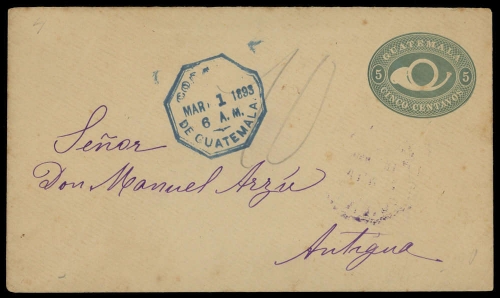 GUATEMALA
5 5
CINCO CENTAVOS
MAR. 1 1893
6 A.M.
DE GUATEMALA
10
Señor
Don Manuel Arzú
Antigua